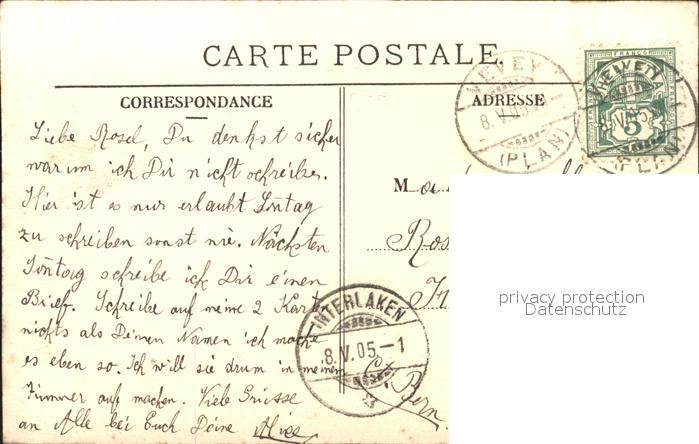 CARTE POSTALE.
CORRESPONDANCE
ADRESSE
Liebe Rosel, Du denkst sicher
warum ich Dir nicht schreibe.
Hier ist es nur erlaubt Sontag
zu schreiben sonst nie. Nächsten
Sontag schreibe ich Dir einen
Brief. Schreibe auf meine 2 Kart
nichts als Deinen Namen ich mache
es eben so. Ich will sie drum in meinem
Zimmer auf machen. Viele Grüsse
an Alle bei Euch Deine Alice
M
Ros
In
Ct. Bern.
VEVEY
8.V.05
(PLAN)
FRANCO
HELVETIA
5
VEVEY
8.V.05
(PLAN)
INTERLAKEN
8.V.05.-1
privacy protection
Datenschutz